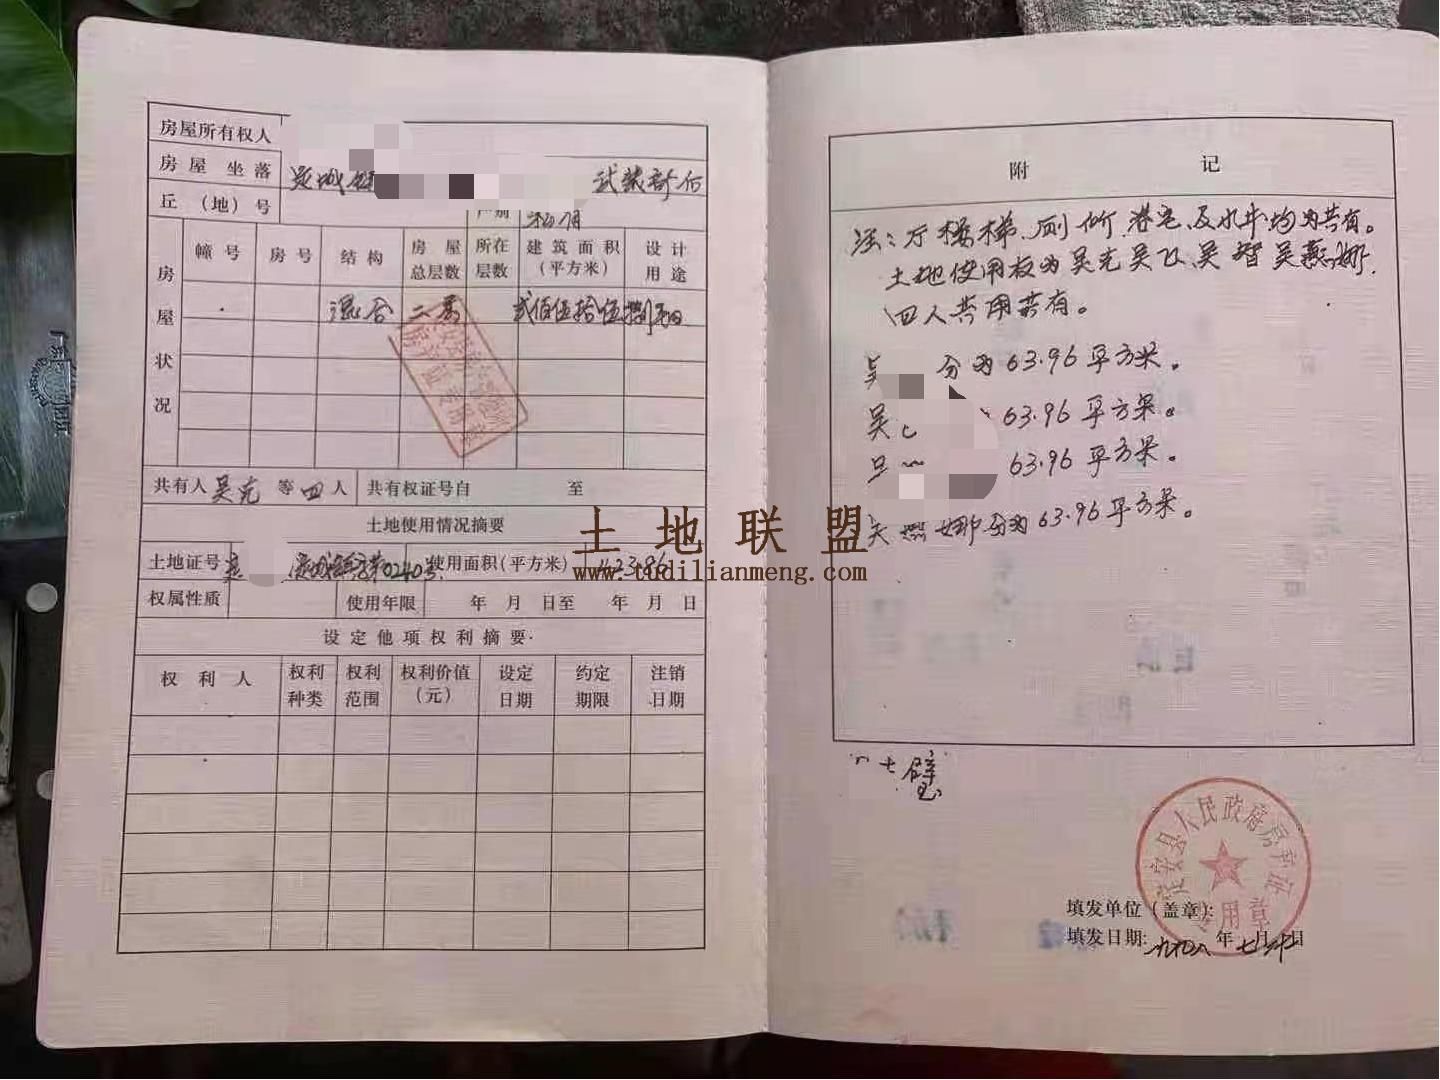 房屋所有权人
房屋坐落 定城镇 武装部后
丘（地）号 产别 私有
房屋状况 幢号 房号 结构 房屋总层数 所在层数 建筑面积（平方米） 设计用途
混合 二层 贰佰伍拾伍捌
共有人 吴克 等 四 人 共有权证号自 至
土地使用情况摘要
土地证号 定 0240号 使用面积(平方米) 423.86
权属性质 使用年限 年 月 日至 年 月 日
设定他项权利摘要
权利人 权利种类 权利范围 权利价值（元） 设定日期 约定期限 注销日期
附 记
注：厅楼梯、厕所 及水井均为共有。
土地使用权为吴克吴飞、吴智吴燕娜
四人共用共有。
吴 分为63.96平方米。
吴 63.96平方米。
63.96平方米。
吴燕娜分为63.96平方米。
土地联盟
www.tudilianmeng.com
定安县人民政府房产证
专用章
填发单位（盖章）:
填发日期: 年 七 月 日